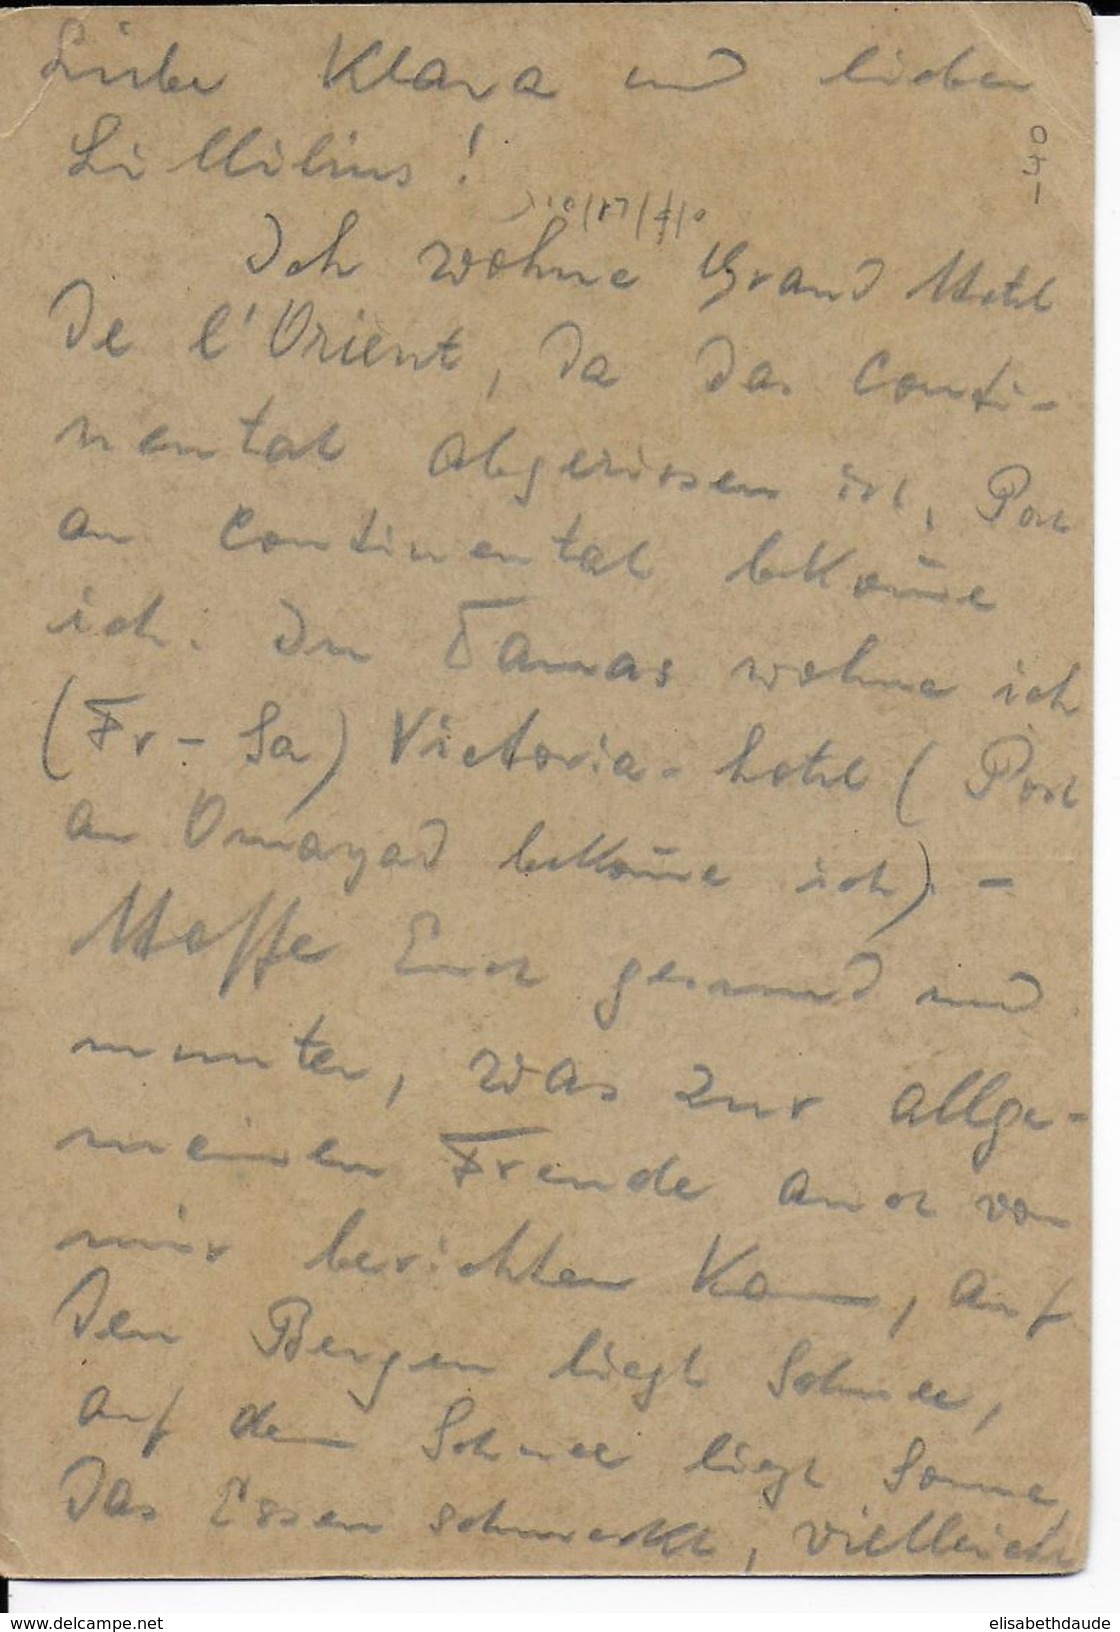 Liebe Klara und lieber
Lillilius!
Ich wohne Grand Hotel
de l'Orient, da das Conti-
nental abgerissen ist, Post
an Continental bekom̄e
ich. In Damas wohne ich
(Fr - Sa) Victoria-hotel (Post
an Omayad bekom̄e ich). -
Hoffe Euch gesund und
munter, was zur allge-
meinen Freude auch von
mir berichten kann, auf
den Bergen liegt Schnee,
auf dem Schnee liegt Sonne,
das Essen schmeckt, vielleicht
delcampe.net
elisabethdaude